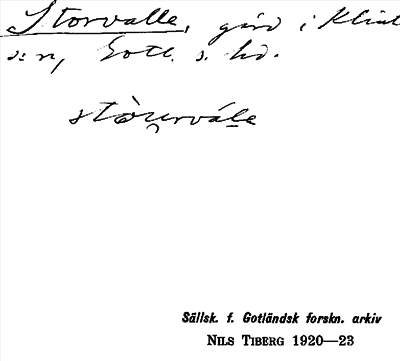 Storvalle, gård i Klint
s:n, Gotl. s. hd.
stòu̯rvále
Sällsk. f. Gotländsk forskn. arkiv
NILS TIBERG 1920—23